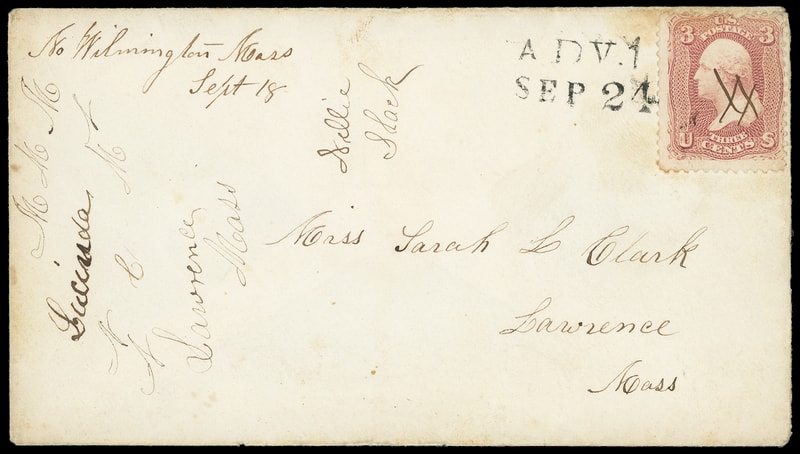 No Wilmington Mass
Sept 18
ADV.1
SEP 24
3 U.S. 3
POSTAGE
THREE
U CENTS S
Miss Sarah L Clark
Lawrence
Mass
M M M
Lucinda
Lawrence
Mass
Willie
Slack